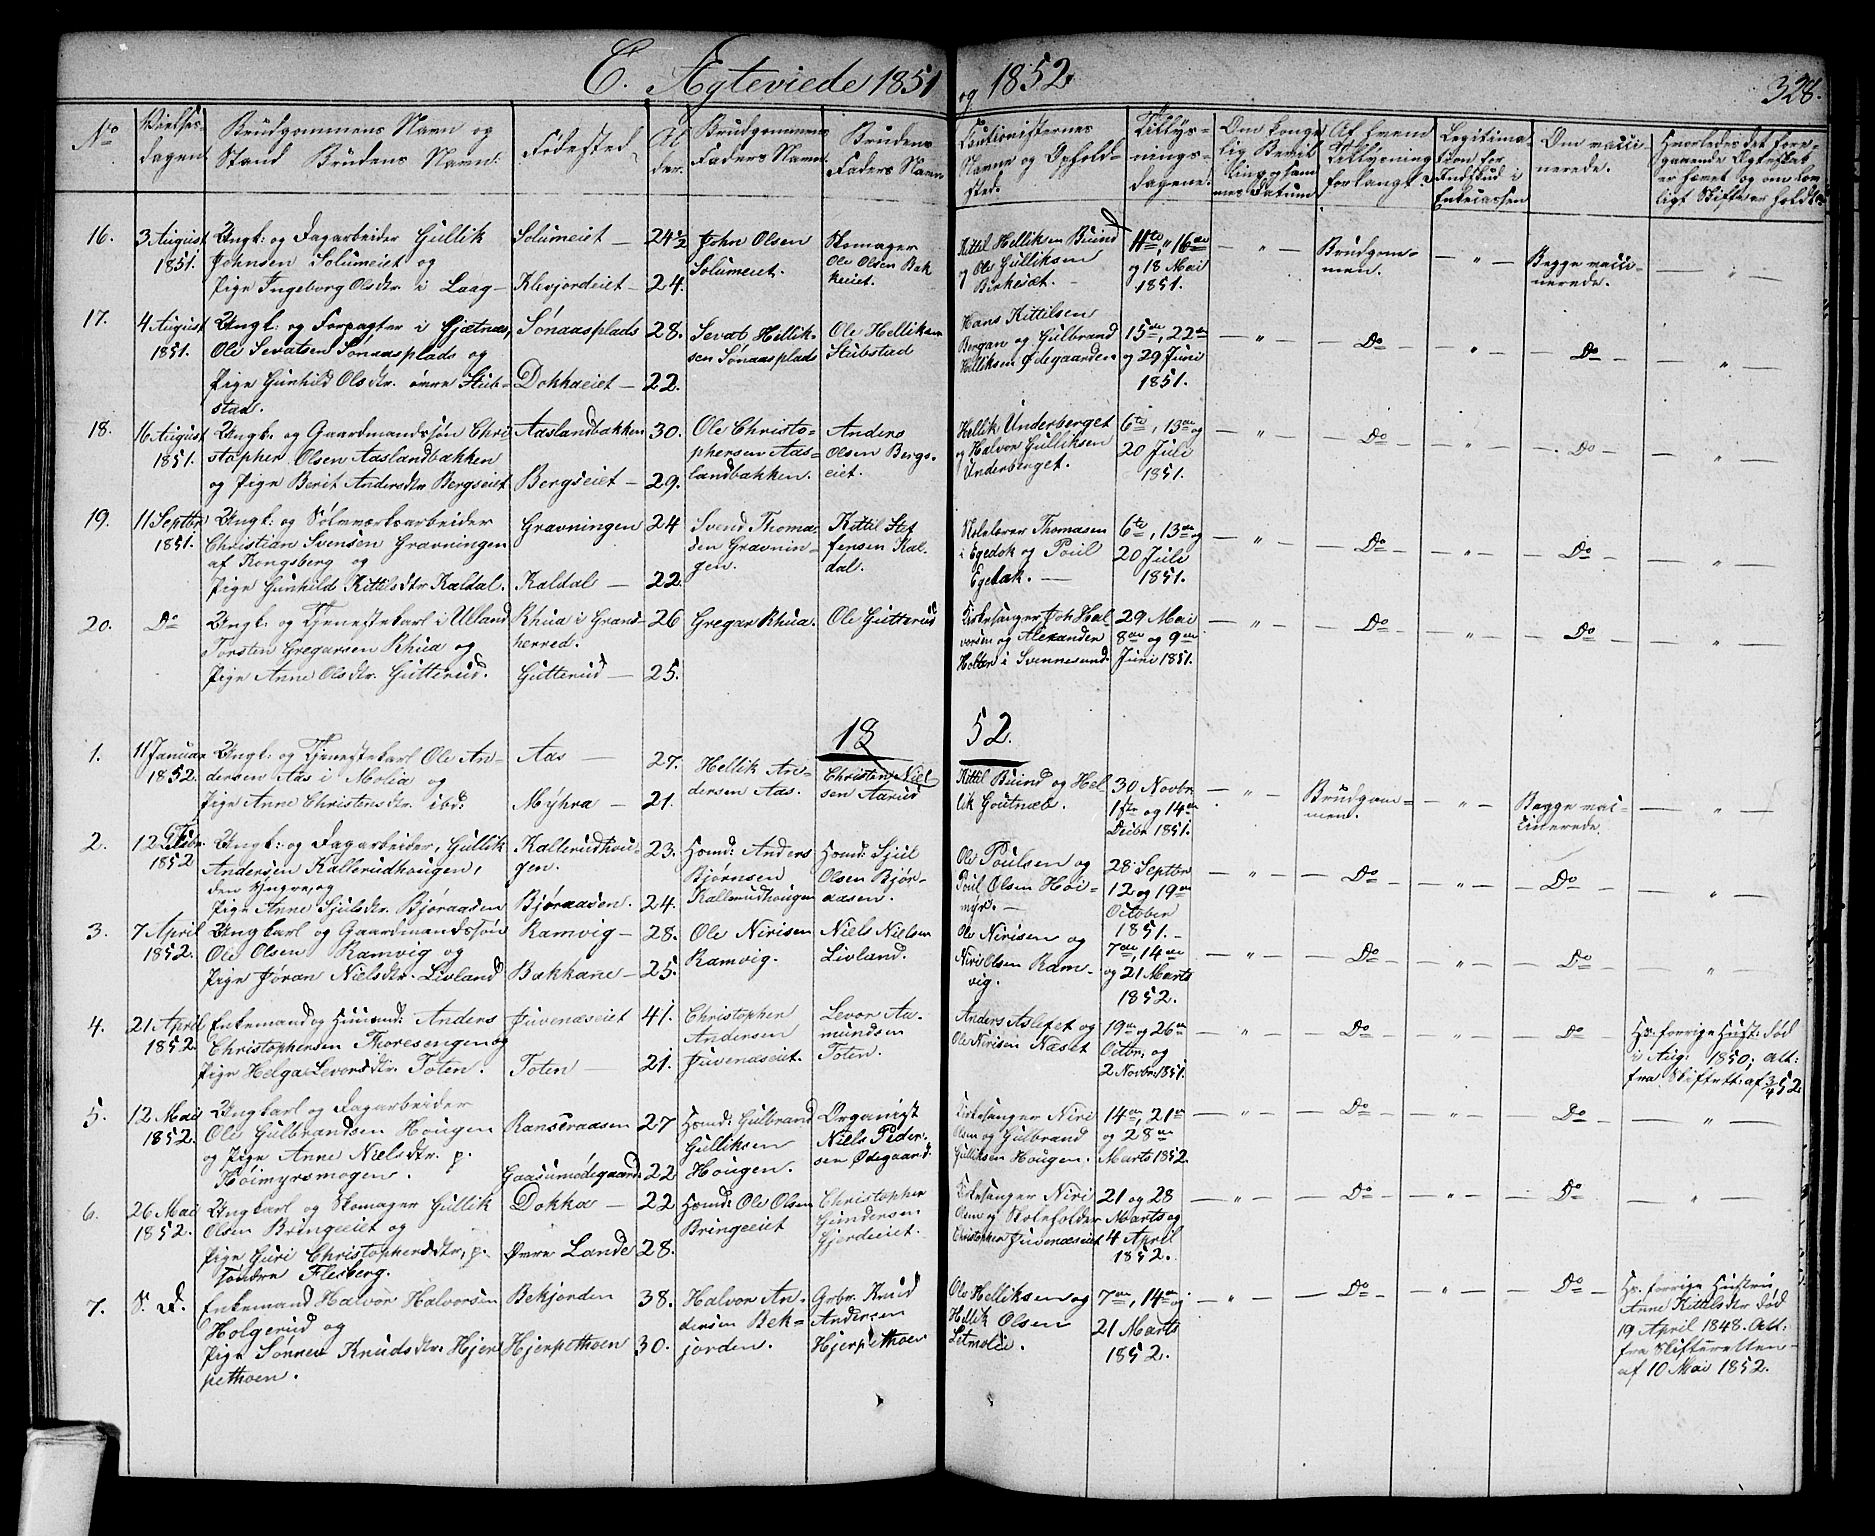 C. Ægteviede 1851 og 1852. 328.
No
Vielses-
dagen.
Brudgommens Navn og
Stand Brudens Navn.
Fødested
Al
der.
Brudgommens
Faders Navn.
Brudens
Faders Navn
Cautionisternes
Navne og Opholds-
sted.
Tillys-
nings-
dagene.
Om konge
lig Bevil
ling og sam
mes Datum
Af hvem
Tillysning
forlangt.
Legitima-
tion for
Indskud i
Enkecassen
Om vacci-
nerede.
Hvorledes det fore-
gaaende Ægteskab
er hævet og om lov
ligt Skifte er holdt
16.
3 August
1851.
Ungk: og Dagarbeider Gullik
Johnsen Solumeiet og
Pige Ingeborg Olsdtr. i Laag
Solumeiet —
Klevjordeiet —
24½
24.
John Olsen
Solumeiet.
Skomager
Ole Olsen Bak
keiet.
Kittil Helliksen Buind
og Ole Gulliksen
Birkesæt. —
11te, 16de
og 18 Mai
1851.
— " —
Brudgom-
men.
— " —
Begge vacci-
nerede.
— " —
17.
4 August
1851.
Ungk: og Forpagter i Gjætnæs,
Ole Sevatsen Sønaasplads og
Pige Gunhild Olsdtr. øvre Stub-
stad.
Sønaasplads
Dokkaeiet —
28.
22.
Sevat Hellik-
sen Sønaasplads
Ole Helliksen
Stubstad
Hans Kittilsen
Bergan og Gulbrand
Helliksen Ødegaarden
15de, 22de
og 29 Juni
1851.
— " —
— Do —
"
— Do —
— " —
18.
16 August
1851.
Ungk: og Gaardmandssøn Chri
stopher Olsen Aaslandbakken
og Pige Berit Andersdtr Bergseiet
Aaslandbakken
Bergseiet —
30.
29.
Ole Christo-
phersen Aas-
landbakken.
Anders
Olsen Bergs-
eiet.
Hellik Underberget
og Halvor Gulliksen
Underberget.
6te, 13de og
20 Juli
1851.
— " —
— Do —
— " —
— Do —
— " —
19.
11 Septbr
1851.
Ungk: og Sølvværksarbeider
Christian Svensen Gravningen
af Kongsberg og
Pige Gunhild Kittilsdtr Kaldal.
Gravningen
Kaldal —
24
22.
Svend Thoma-
sen Gravnin-
gen.
Kittil Stef
fensen Kal-
dal.
Skolelærer Thomasen
i Egedok og Poul
Egedok. —
6te, 13de og
20 Juli
1851.
— " —
— Do —
— " —
— Do —
— " —
20.
Do
Ungk: og Tjenestekarl i Ulland
Torsten Gregarsen Rhua og
Pige Anne Olsdtr. Gutterud.
Rhua i Grans-
herred.
Gutterud —
26
25.
Gregar Rhua.
Ole Gutterud
Kirkesanger Joh Hal-
vorsen og Alexander
Holter i Svennesund.
29 Mai
8de og 9de
Juni 1851.
— " —
— Do —
— " —
— Do —
— " —
18 52.
1.
11 Januar
1852.
Ungk: og Tjenestekarl Ole An-
dersen Aas i Molia og
Pige Anne Christensdtr. ibd.
Aas —
Myhra —
27.
21.
Hellik An-
dersen Aas.
Christen Niel
sen Aarud
Kittil Buind og Hel
lik Goutnæb.
30 Novbr
1ste og 14de
Decbr 1851.
— " —
Brudgom-
men.
— " —
Begge vac-
cinerede.
— " —
2.
12 Febr.
1852.
Ungk: og Dagarbeider, Gullik
Andersen Kallerudhougen,
den Yngre, og
Pige Anne Sjulsdtr. Bjøraasen
Kallerudhou-
gen.
Bjøraasen.
23.
24.
Hsmd: Anders
Bjørnsen
Kallerudhougen
Hsmd: Sjul
Olsen Bjør-
aasen.
Ole Poulsen og
Poul Olsen Høi-
myr. —
28 Septbr
12 og 19de
October
1851. —
— " —
— Do —
— " —
— Do —
— " —
3.
7 April
1852.
Ungkarl og Gaardmandssøn
Ole Olsen Ramvig og
Pige Jøran Nielsdtr. Livland
Ramvig —
Bakkane —
28.
25.
Ole Nirisen
Ramvig.
Niels Nielsen
Livland.
Ole Nirisen og
Niri Olsen Ram-
vig.
7de, 14de
og 21 Marts
1852.
— " —
— Do —
— " —
— Do —
— " —
4.
21 April
1852.
Enkemand og Huusmd: Anders
Christophersen Thoresengen og
Pige Helga Levorsdtr. Toten.
Juvenæseiet
Toten
41.
21.
Christopher
Andersen
Juvenæseiet.
Levor Aa-
mundsen
Toten.
Anders Aslefet og
Ole Nirisen Næset
19de og 26de
Octbr. og
2 Novbr. 1851.
— " —
Do
— " —
Do
Hs: forrige Hust: død
i Aug: 1850; Att:
fra Skifterett: af 3/4 52.
5.
12. Mai
1852.
Ungkarl og Dagarbeider
Ole Gulbrandsen Hougen
og Pige Anne Nielsdtr. p.
Høimyrsmogen.
Ranseraasen
Gaasumødegaard
27
22
Hsmd: Gulbrand
Gulliksen
Hougen.
Organist
Niels Peder-
sen Ødegaard.
Kirkesanger Niri
Olsen og Gulbrand
Gulliksen Hougen.
14de, 21de
og 28de
Marts 1852.
— " —
Do
— " —
Do
— " —
6.
26 Mai
1852.
Ungkarl og Skomager Gullik
Olsen Bringeeiet og
Pige Guri Christophersdtr, p.
Søndre Flesberg.
Dokka —
Øvre Lande
22
28.
Hsmd: Ole Olsen
Bringeeiet
Christopher
Gundersen
Gjerdeeiet.
Kirkesanger Niri
Olsen og Skoleholder
Christopher Juvenæseiet
21 og 28
Marts og
4 April
1852.
— " —
Do
— " —
Do
— " —
7.
S. D.
Enkemand Halvor Halvorsen
Holgerud og
Pige Sønnev Knudsdtr. Hjer
pethoen.
Bekjorden
Hjerpethoen
38.
30.
Halvor An-
dersen Bek-
jorden.
Grbr. Knud
Andersen
Hjerpethoen
Ole Helliksen og
Hellik Olsen
Letmolie.
7de, 14de og
21 Marts
1852.
— " —
Do
— " —
Do
Hs. forrige Hustru
Anne Kittelsdtr død
19 April 1848. Att:
fra Skifteretten
af 10 Mai 1852.